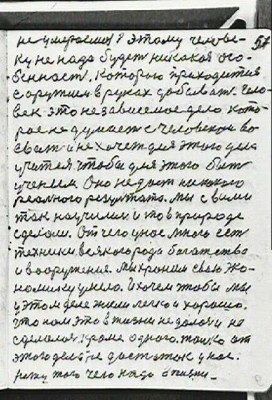 не умираешь? Этому челове-
ку не надо будет никакой осо-
бенности. Которою приходится 57
с оружием в руках добывать. Чело-
век это независимое дело кото-
рое не думает с человеком во
своем и не хочет для этого дела
учится чтобы для этого быть
ученым. Оно не даст никакого
реального результата. Мы с вами
так научились и то в природе
сделали. От чего у нас много есть
техники всякого рода богатства
и вооружение. Мы храним свою эко-
номику умело. И хочем чтобы мы
в этом деле жили легко и хорошо.
Что нам это в жизни не далось и не
сделалось. Кроме одного, только от
этого дела и достаток у нас.
того чего надо в жизни.